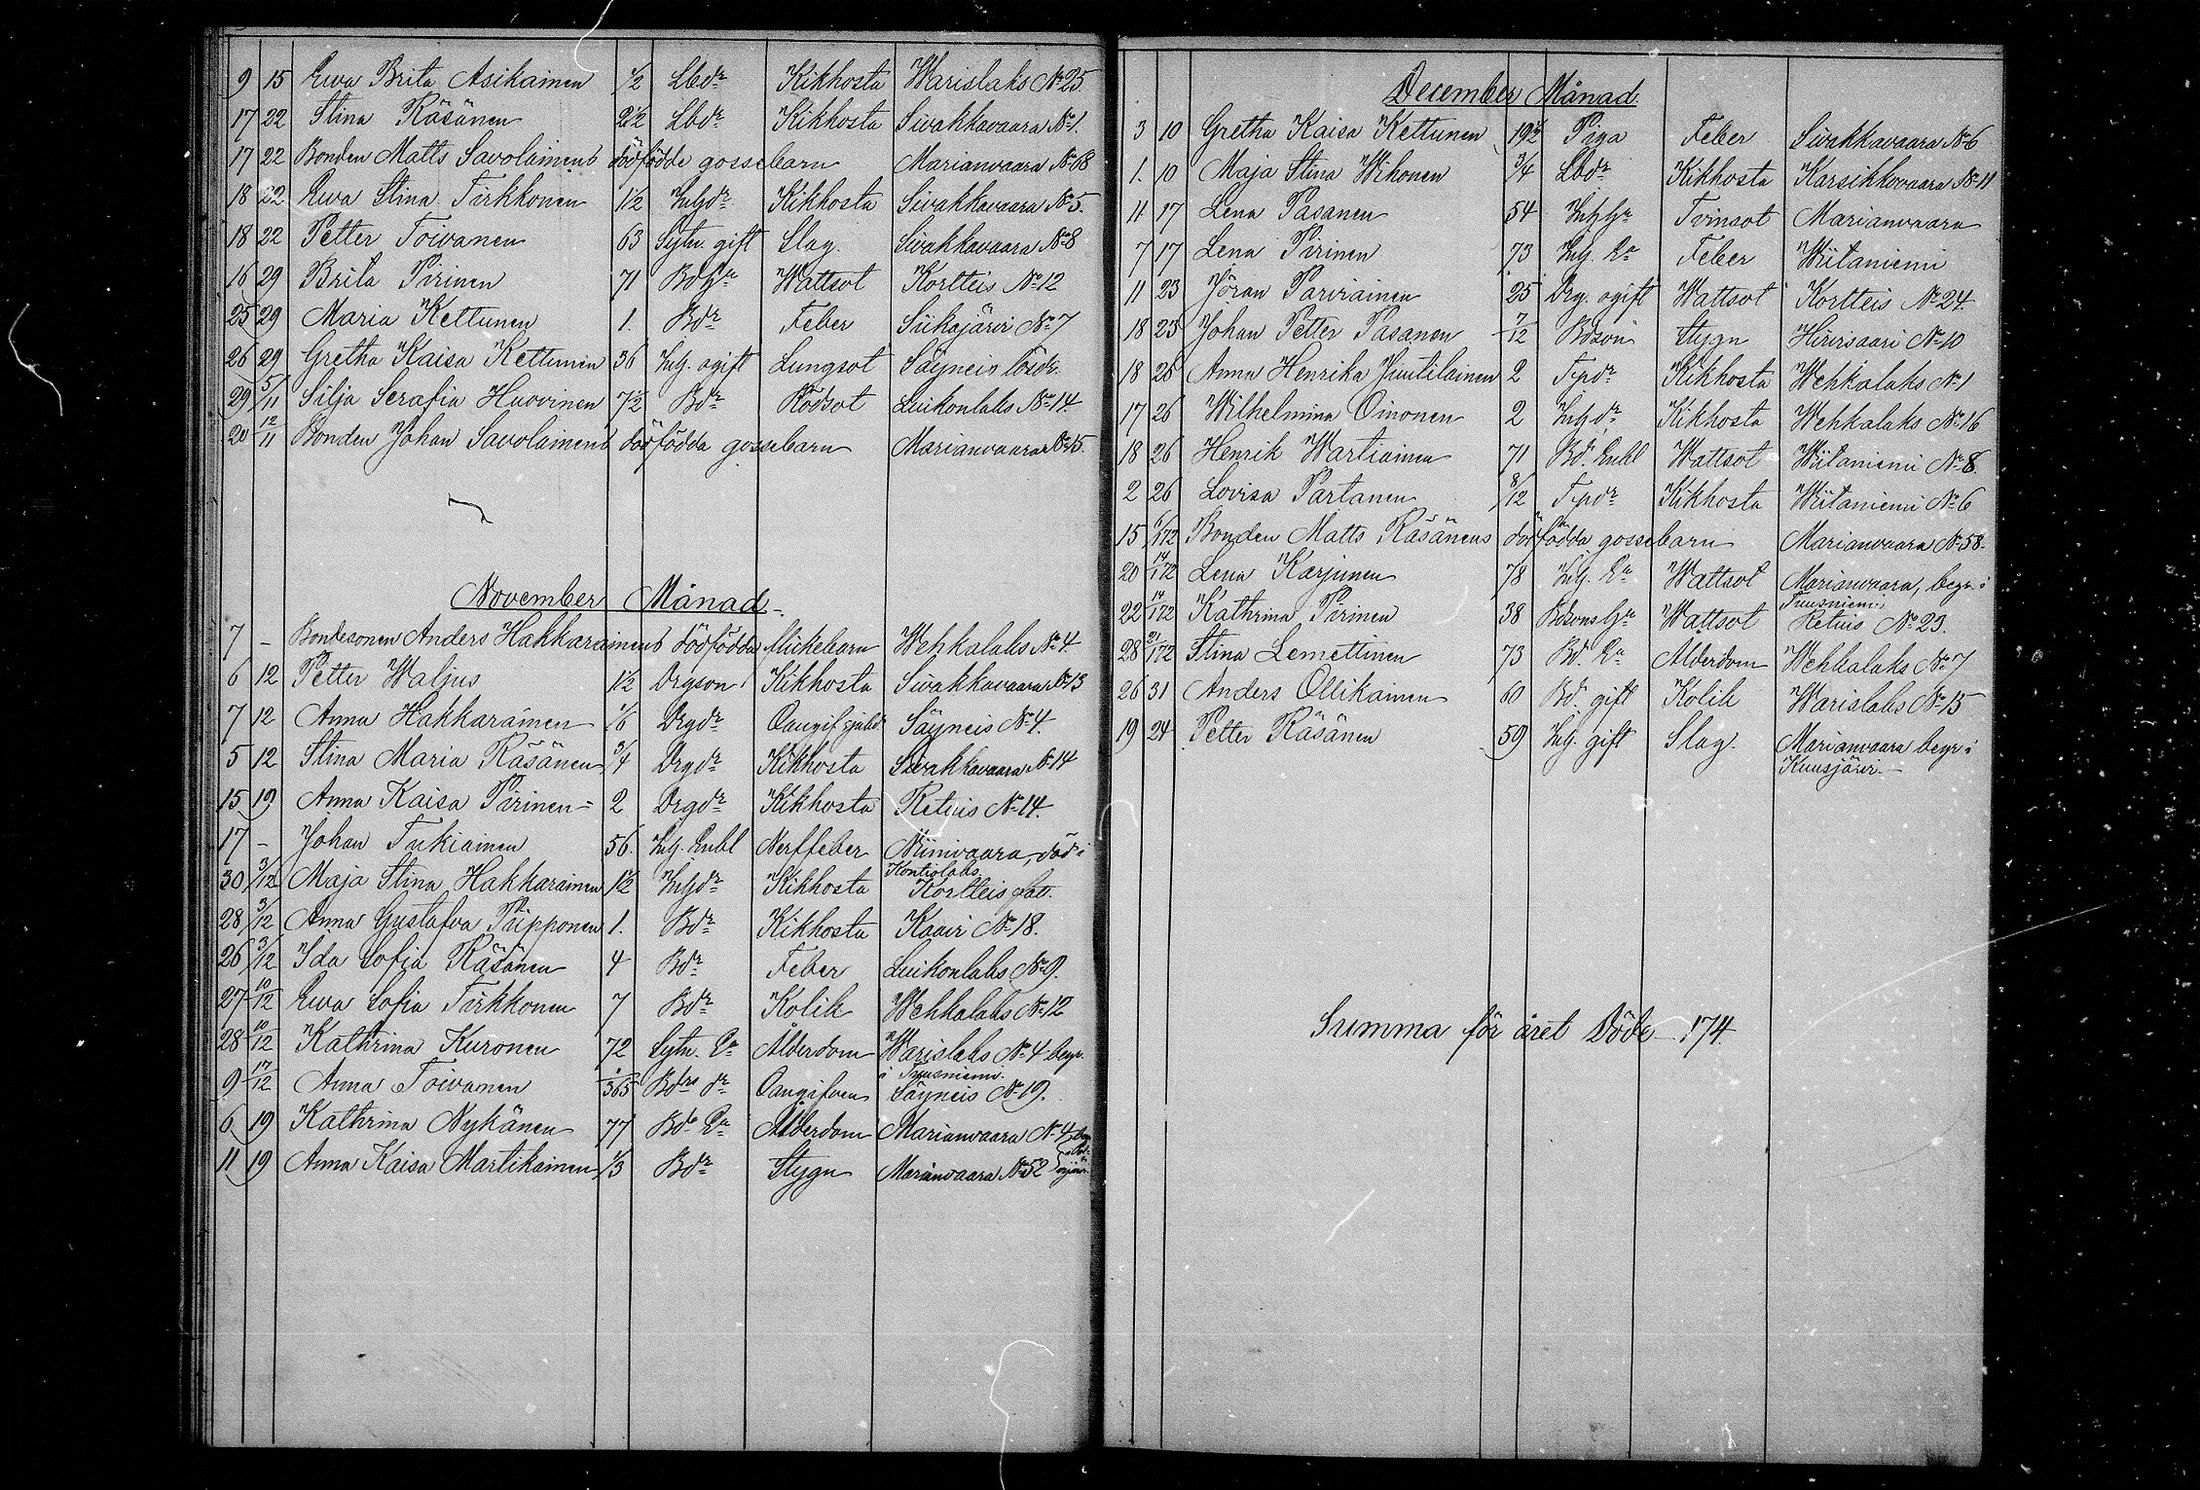 9 15 Ewa Brita Asikainen 1/2 Lbdr Kikhosta Warislaks No 25.
17 22 Stina Räsänen 2 1/2 Lbdr Kikhosta Sivakkavaara No 1.
17 22 Bonden Matts Savolainens dödfödde gossebarn Marianvaara No 18
18 22 Ewa Stina Tirkkonen 1 1/2 Inhdr Kikhosta Sivakkavaara No 5.
18 22 Petter Toivanen 63 Sytn. gift Slag. Sivakkavaara No 8
16 29 Brita Pirinen 71 Wattsot Kortteis No 12
25 29 Maria Kettunen 1. Bdr Feber Siikajärvi No 7
26 29 Gretha Kaisa Kettunen 36 Inh. ogift Lungsot Säyneis lösdr.
29 5/11 Silja Serafia Huovinen 7 1/2 Bdr Rödsot Luikonlaks No 14.
20 12/11 Bonden Johan Savolainens dödfödda gossebarn Marianvaara No 15.
November Månad
7 – Bondesonen Anders Hakkarainens dödfödda flickebarn Wehkalaks No 4
6 12 Petter Waljus 1 1/2 Drgson Kikhosta Sivakkavaara No 13
7 12 Anna Hakkarainen 1/6 Drgdr Oangif. sjukd. Säyneis No 4.
5 12 Stina Maria Räsänen 3/4 Drgdr Kikhosta Sivakkavaara No 14
15 19 Anna Kaisa Pirinen 2 Drgdr Kikhosta Retuis No 14.
17 – Johan Tukiainen 56. Inh. Enkl Nerffeber Niinivaara, död i
Kontiolaks.
30 3/12 Maja Stina Hakkarainen 1 1/2 Inhdr Kikhosta Kortteis fatt.
28 3/12 Anna Gustafva Piipponen 1. Bdr Kikhosta Kaavi No 18.
26 3/12 Ida Sofia Räsänen 4 Bdr Feber Luikonlaks No 9.
27 10/12 Ewa Sofia Tirkkonen 7 Bdr Kolik Wehkalaks No 12
28 10/12 Kathrina Kuronen 72 Sytn. Ea Ålderdom Warislaks No 4 begr.
i Tuusniemi.
9 17/12 Anna Toivanen 1/365 Bdrs dr Oangifven Säyneis No 19.
6 19 Kathrina Nykänen 77 Bd. Ea Ålderdom Marianvaara No 4
11 19 Anna Kaisa Martikainen 1/3 Bdr Stygn Marianvaara No 52
December Månad.
3 10 Gretha Kaisa Kettunen 19 1/2 Piga Feber Sivakkavaara No 6
1. 10 Maja Stina Wihonen 3/4 Lbdr Kikhosta Karsikkovaara No 11
11 17 Lena Pasanen 54 Tvinsot Marianvaara
7 17 Lena Pirinen 73 Inh. Ea Feber Wiitaniemi
11 23 Jöran Parviainen 25 Drg. ogift Wattsot Kortteis No 24.
18 23 Johan Petter Pasanen 7/12 Bdson Stygn Hirvisaari No 10
18 26 Anna Henrika Juutilainen 2 Tpdr Kikhosta Wehkalaks No 1
17 26 Wilhelmina Oinonen 2 Inhdr Kikhosta Wehkalaks No 16
18 26 Henrik Wartiainen 71 Bd. Enkl Wattsot Wiitaniemi No 8.
2 26 Lovisa Partanen 8/12 Tpdr Kikhosta Wiitaniemi No 6
15 6/172 Bonden Matts Räsänens dödfödda gossebarn Marianvaara No 58.
20 14/172 Lena Karjunen 78 Inh. Ea Wattsot Marianvaara, begr. i
Tuusniemi.
22 14/172 Kathrina Pirinen 38 Bdsons Hu Wattsot Retuis No 23.
28 21/172 Stina Lemettinen 73 Bd. Ea Ålderdom Wehkalaks No 7
26 31 Anders Ollikainen 60 Bd. gift Kolik Warislaks No 15
19 24 Petter Räsänen 59 Inh. gift Slag. Marianvaara begr. i
Kuusjärvi.
Summa för året Döde 174